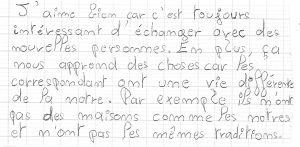 J'aime bien car c'est toujours
intéressant d'échanger avec des
nouvelles personnes. En plus, ça
nous apprend des choses car les
correspondant ont une vie différente
de la notre. Par exemple ils n'ont
pas des maisons comme les notres
et n'ont pas les mêmes traditions.